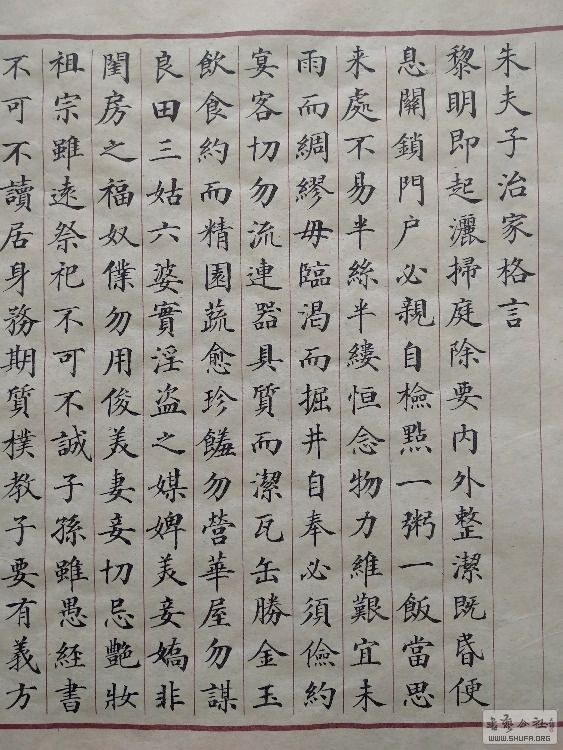 朱夫子治家格言
黎明即起灑掃庭除要内外整潔既昬便
息關鎖門户必親自檢點一粥一飯當思
来處不易半絲半縷恒念物力維艱宜未
雨而綢繆毋臨渴而掘井自奉必須儉約
宴客切勿流連器具質而潔瓦缶勝金玉
飲食約而精園蔬愈珍饈勿營華屋勿謀
良田三姑六婆實淫盗之媒婢美妾嬌非
閨房之福奴僕勿用俊美妻妾切忌艷妝
祖宗雖遠祭祀不可不誠子孫雖愚經書
不可不讀居身務期質樸教子要有義方
WWW.SHUFA.ORG